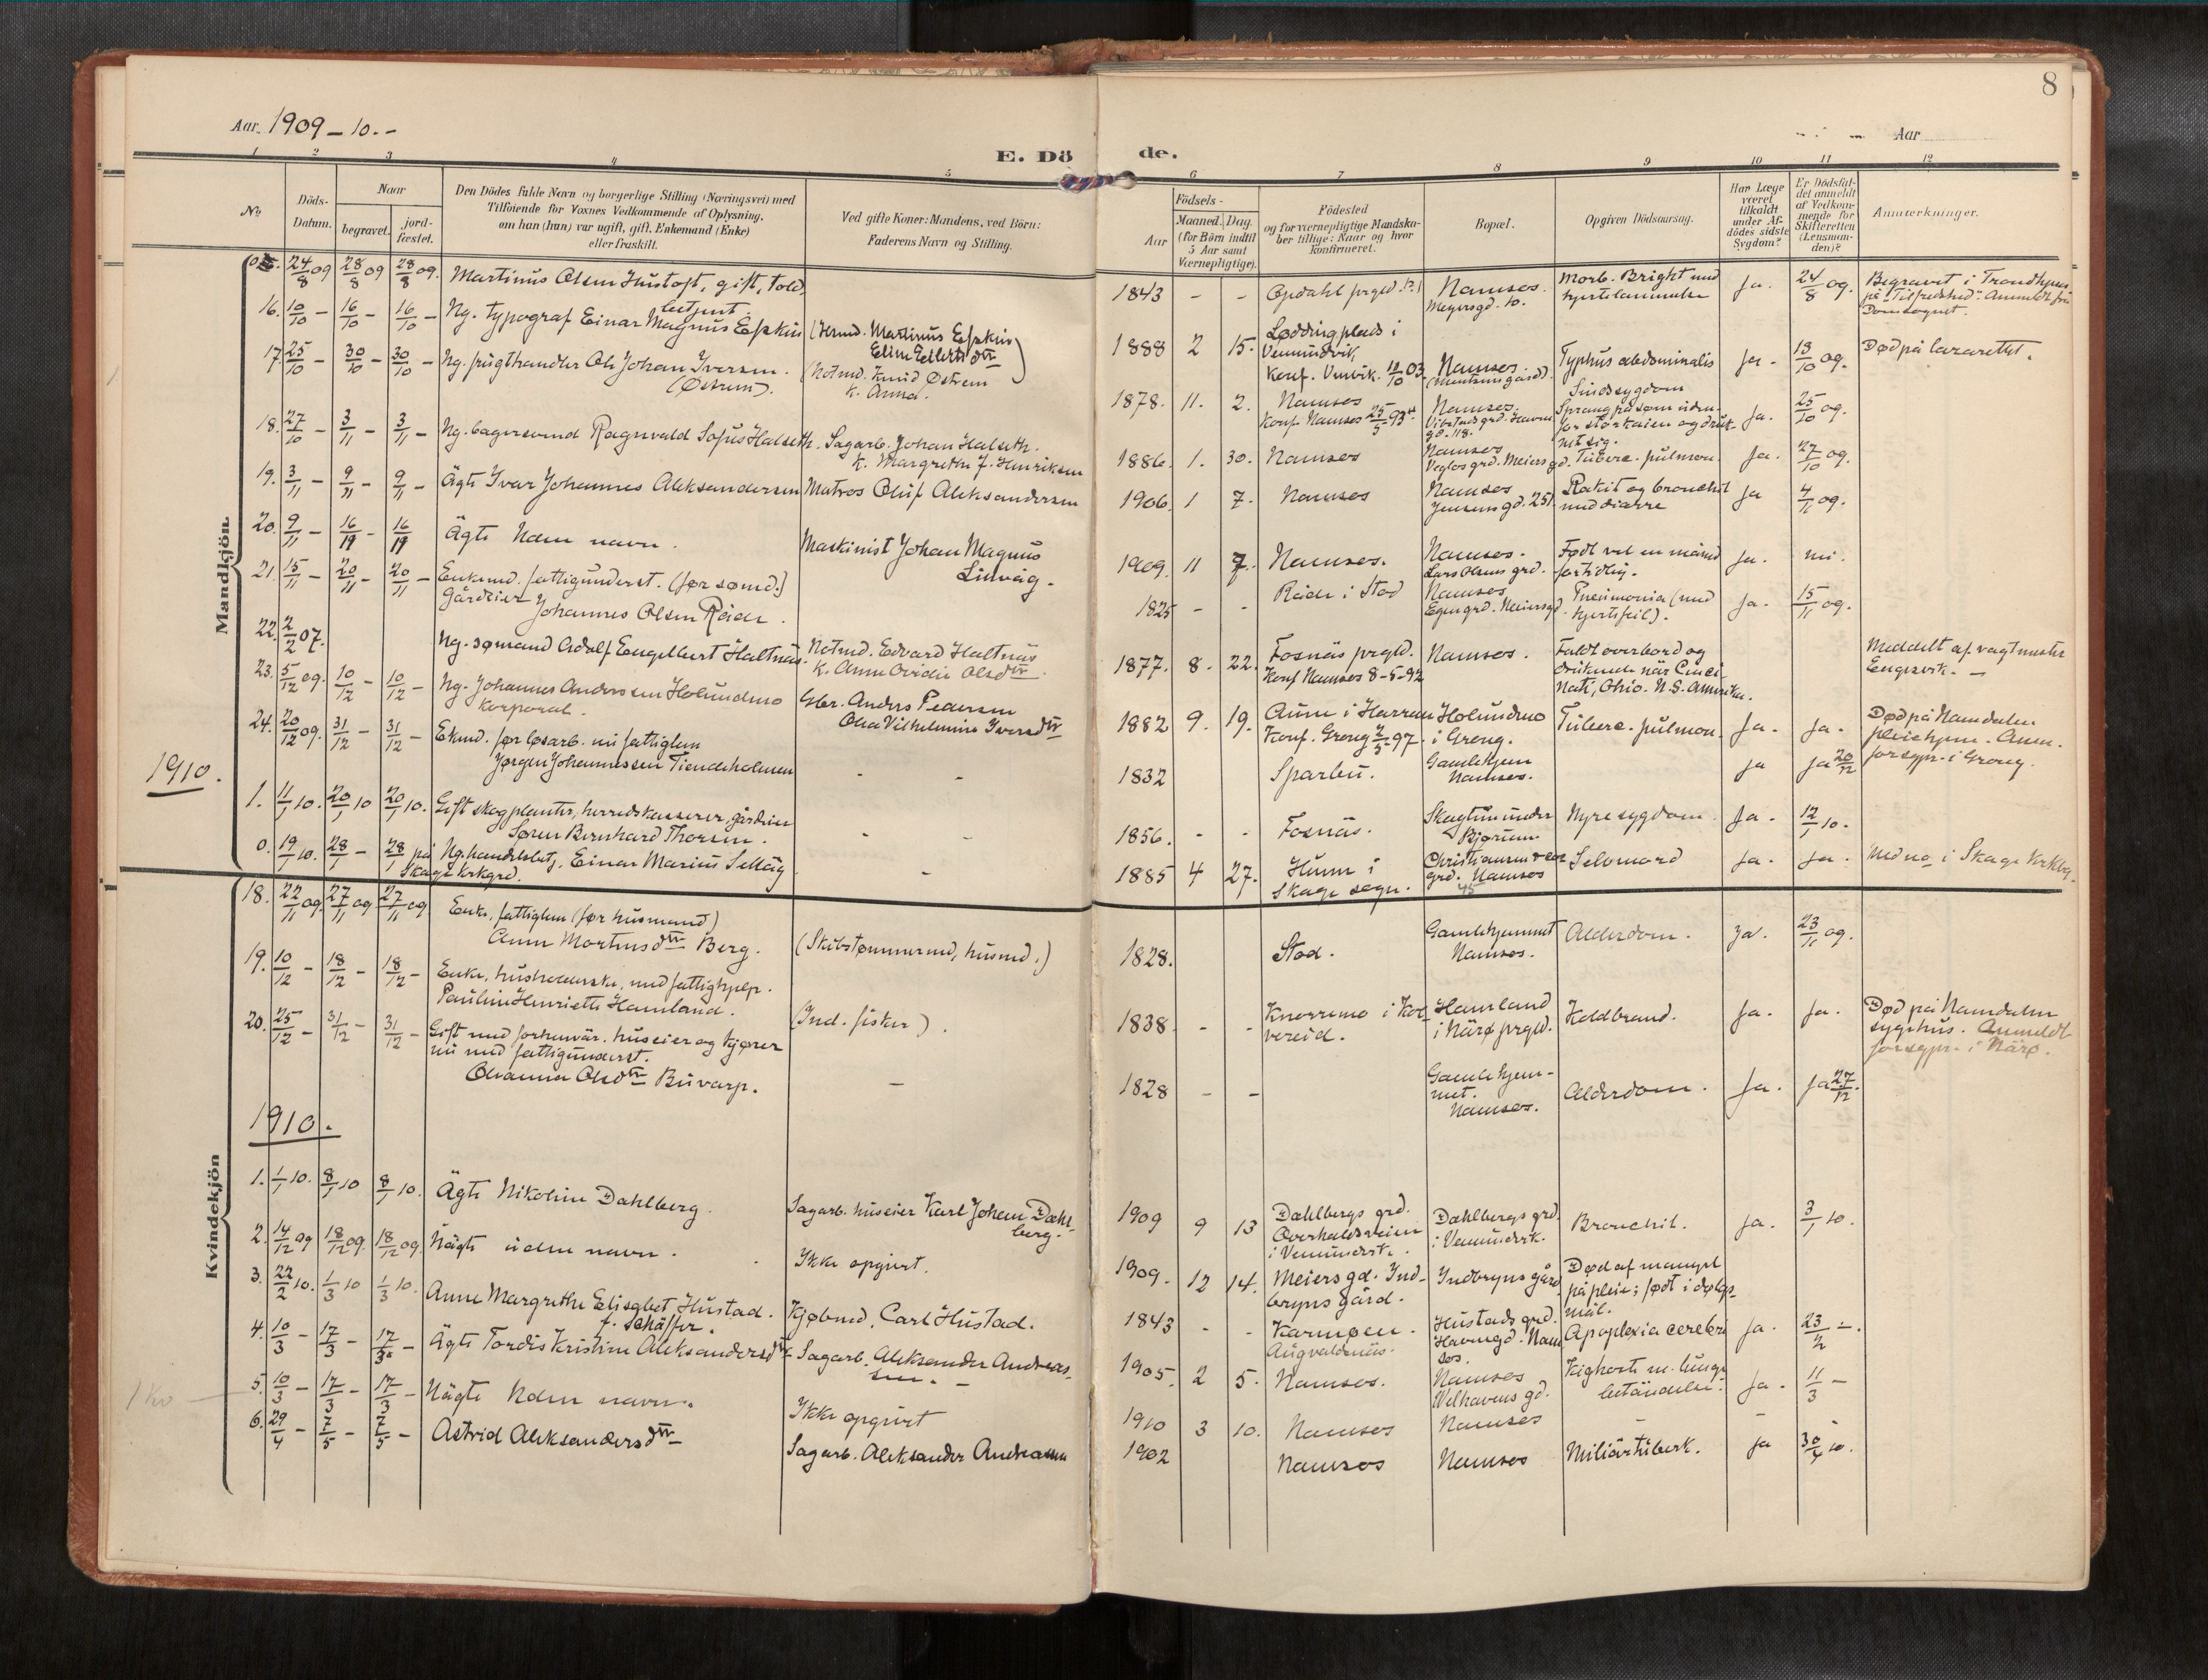 8
Aar. 1909 - 10. -
Aar
E. Dö
de.
1 2 3 4 5
6 7 8 9 10 11 12
No.
Döds-
Datum.
Naar
begravet.
jord-
fæstet.
Den Dödes fulde Navn og borgerlige Stilling (Næringsvei) med
Tilföiende for Voxnes Vedkommende af Oplysning,
om han (hun) var ugift, gift, Enkemand (Enke)
eller fraskilt.
Ved gifte Koner: Mandens, ved Börn:
Faderens Navn og Stilling.
Födsels-
Aar
Maaned. Dag.
(for Börn indtil
5 Aar samt
Værnepligtige).
Födested
og for værnepligtige Mandska-
ber tillige: Naar og hvor
konfirmeret.
Bopæl.
Opgiven Dödsaarsag.
Har Læge
været
tilkaldt
under Af-
dödes sidste
Sygdom?
Er Dödsfal-
det anmeldt
af Vedkom-
mende for
Skifteretten
(Lensman-
den)?
Anmærkninger.
Mandkjön
0. 24/8 09 28/8 09 28/8 09. Martinus Olsen Hustoft, gift, told
betjent.
1843 - - Opdahl prgld. (?) Namsos. Meyersgd. 10. Morb. Bright med hjertelammelse Ja. 24/8 09. Begravet i Trondhjem
på "Tilfredshed". Anmeldt fra
Domsognet.
16. 10/10 - 16/10 - 16/10 - Ug. typograf Einar Magnus Espkin
1888 2 15. Løddingplads i
Vemundvik
Konf. Vemvik. 03. Namsos. Typhus abdominalis Ja - 13/10 09. Død på lazarettet.
17. 25/10 - 30/10 - 30/10 - Ug. frugthandler Ole Johan Iversen.
(Østrem). Notmd. Knud Østrem
K. Anna.
1878. 11. 2. Namsos
Konf. Namsos 25/5 93 Namsos. Sindssygdom
Sprang på sjøen uden-
for storkaien og druk-
net sig. Ja. 25/10 09.
18. 27/10 - 3/11 - 3/11 - Ug. bagersvend Ragnvald Sofus Halseth. Sagarb. Johan Halseth.
K. Margrethe f. Henriksen
1886. 1. 30. Namsos Namsos
Meiersgd. Tuberc. pulmon. Ja. 27/10 09.
19. 3/11 - 9/11 - 9/11 - Ägte Ivar Johannes Aleksandersen Matros Oluf Aleksandersen
1906. 1 7. Namsos Namsos
Jensens gd. 251. Rakit og bronchit
med diarre Ja 4/11 09.
20. 9/11 - 16/19 - 16/19 Ägte Uden navn. Maskinist Johan Magnus
Linvåg.
1909. 11 7. Namsos. Namsos.
Lars Olsens grd. Født vel en måned
fortidlig. Ja. nei.
21. 15/11 - 20/11 - 20/11 - Enkemd. fattigunderst. (før sømd.)
gårdeier Johannes Olsen Råde.
1825 - - Råde i Stod Namsos
Meiersgd. Pneumonia (med
hjertefeil). Ja. 15/11 09.
22. 2/2 07. Ug. sømand Adolf Engelbert Haltnäs. Notmd. Edvard Haltnäs
K. Anne Ovidie Olsdtr.
1877. 8. 22. Fosnäs prgld.
Konf Namsos 8-5-92 Namsos. Faldt overbord og
druknede när Cinci-
nati, Ohio. N.S. Amerika. Meddelt af vagtmester
Engesvik. -
23. 5/12 09. 10/12 - 10/12 - Ug. Johannes Anderssen Holundmo
Korporal. Gbr. Anders Pedersen
Olea Vilhelmine Iversdtr
1882 9. 19. Aune i Harran
Konf. Grong 97. Holundmo
i Grong. Tuberc. pulmon. Ja. Ja. Død på Namdalen
pleiehjem. Anm.
for sgpr. i Grong.
24. 20/12 09. 31/12 - 31/12 - Ekmd. før løsarb. nu fattiglem
Jørgen Johannessen Tiendeholmen - -
1832 Sparbu. Gamlehjem
Namsos. Ja Ja 20/12
1910.
1. 11/1 10. 20/1 10 20/1 10. Gift skogplanter, herredskasserer, gårdeier
Søren Bernhard Thorsen. - -
1856. - - Fosnäs. Nyresygdom. Ja. 12/1 10.
0. 19/1 10. 28/1 - 28/1 på Skage krkgrd. Ug. handelsbetj. Einar Marius Selläg -
1885 4 27. Hunn i
Skage sogn. grd. Namsos Selvmord Ja. Ja. i Skage
Kvindekjön
18. 22/11 09. 27/11 09 27/11 09 Enke, fattiglem (før husmand)
Anne Mortensdtr Berg. (Skibstømmermd, husmd.)
1828. Stod. Gamlehjemmet
Namsos. Alderdom. Ja. 23/11 09.
19. 10/12 - 18/12 - 18/12 - Enke, husholderske, med fattighjelp.
Pauline Henriette Hamland. (Ind. fisker).
1838 - - i Kol-
vereid. Hamland
i Närø prgld. Koldbrand. Ja. Ja. Død på Namdalen
sygehus. Anmeldt
for sgpr. i Närø.
20. 25/12 - 31/12 - 31/12 - Gift med forhenvär. huseier og kjører
nu med fattigunderst.
Olianna Olsdtr Buvarp. -
1828 - - Gamlehjem-
met.
Namsos. Alderdom. Ja. Ja 27/12.
1910.
1. 1/1 10. 8/1 10 8/1 10. Ägte Nikoline Dahlberg. Sagarb. huseier Karl Johan Dahl-
berg.
1909 9 13 Dahlbergs grd.
Overhaldsveien
i Vemundvik. Dahlbergs grd.
i Vemundvik. Bronchit. Ja. 3/1 10.
2. 14/12 09 18/12 09. 18/12 09. Uägte uden navn. Ikke opgivet.
1909. 12 14. Meiers gd. Ind-
bryns gård. Indbryns gård Død af mangel
på pleie; født i dølgs-
mål.
3. 22/2 10. 1/3 10 1/3 10. Anne Margrethe Elisabet Hustad.
f. Schäffer. Kjøbmd. Carl Hustad.
1843 - - Karmøen.
Augvaldsnäs. Hustads grd.
Havnegd. Nam-
sos. Apoplexia cerebri Ja. 23/2 -.
4. 10/3 - 17/3 - 17/3 - Ägte Tordis Kristine Aleksandersdtr Sagarb. Aleksander Andreas-
sen. -
1905. 2 5. Namsos. Namsos
Welhavens gd. Kighoste m. lunge-
betändelse. Ja. 11/3 -
1 kv
5. 10/3 - 17/3 - 17/3 - Uägte Uden navn. Ikke opgivet
1910 3 10. Namsos Namsos - -
6. 29/4 - 7/5 - 7/5 - Astrid Aleksandersdtr Sagarb. Aleksander Andreassen
1902 Namsos Namsos Miliärtuberk. Ja 30/4 10.